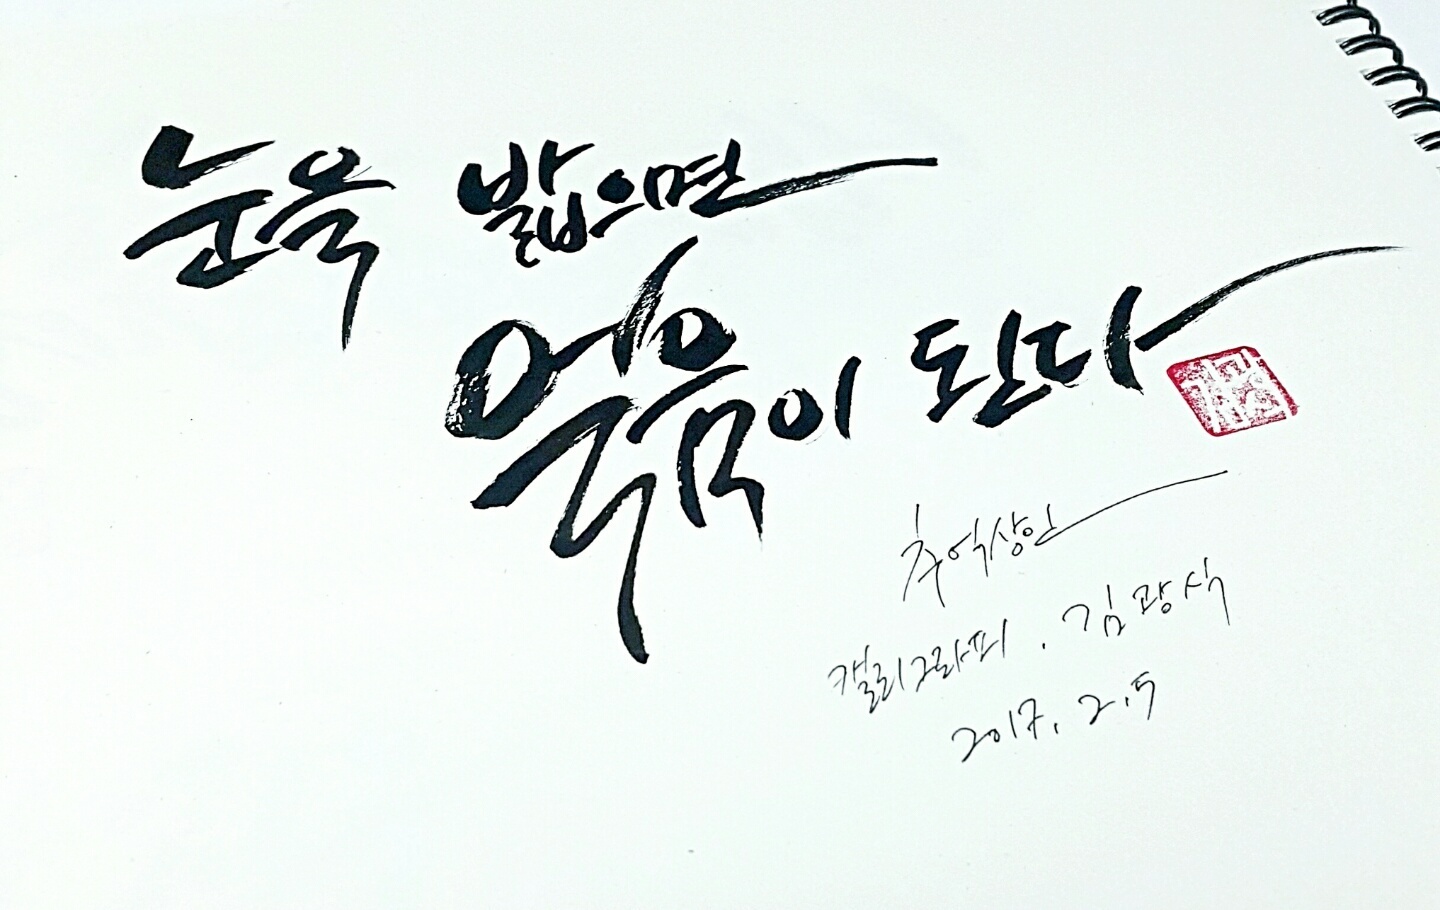 눈을 밟으면
얼음이 된다
추억상인
캘리그라피 . 김광석
2017. 2. 5